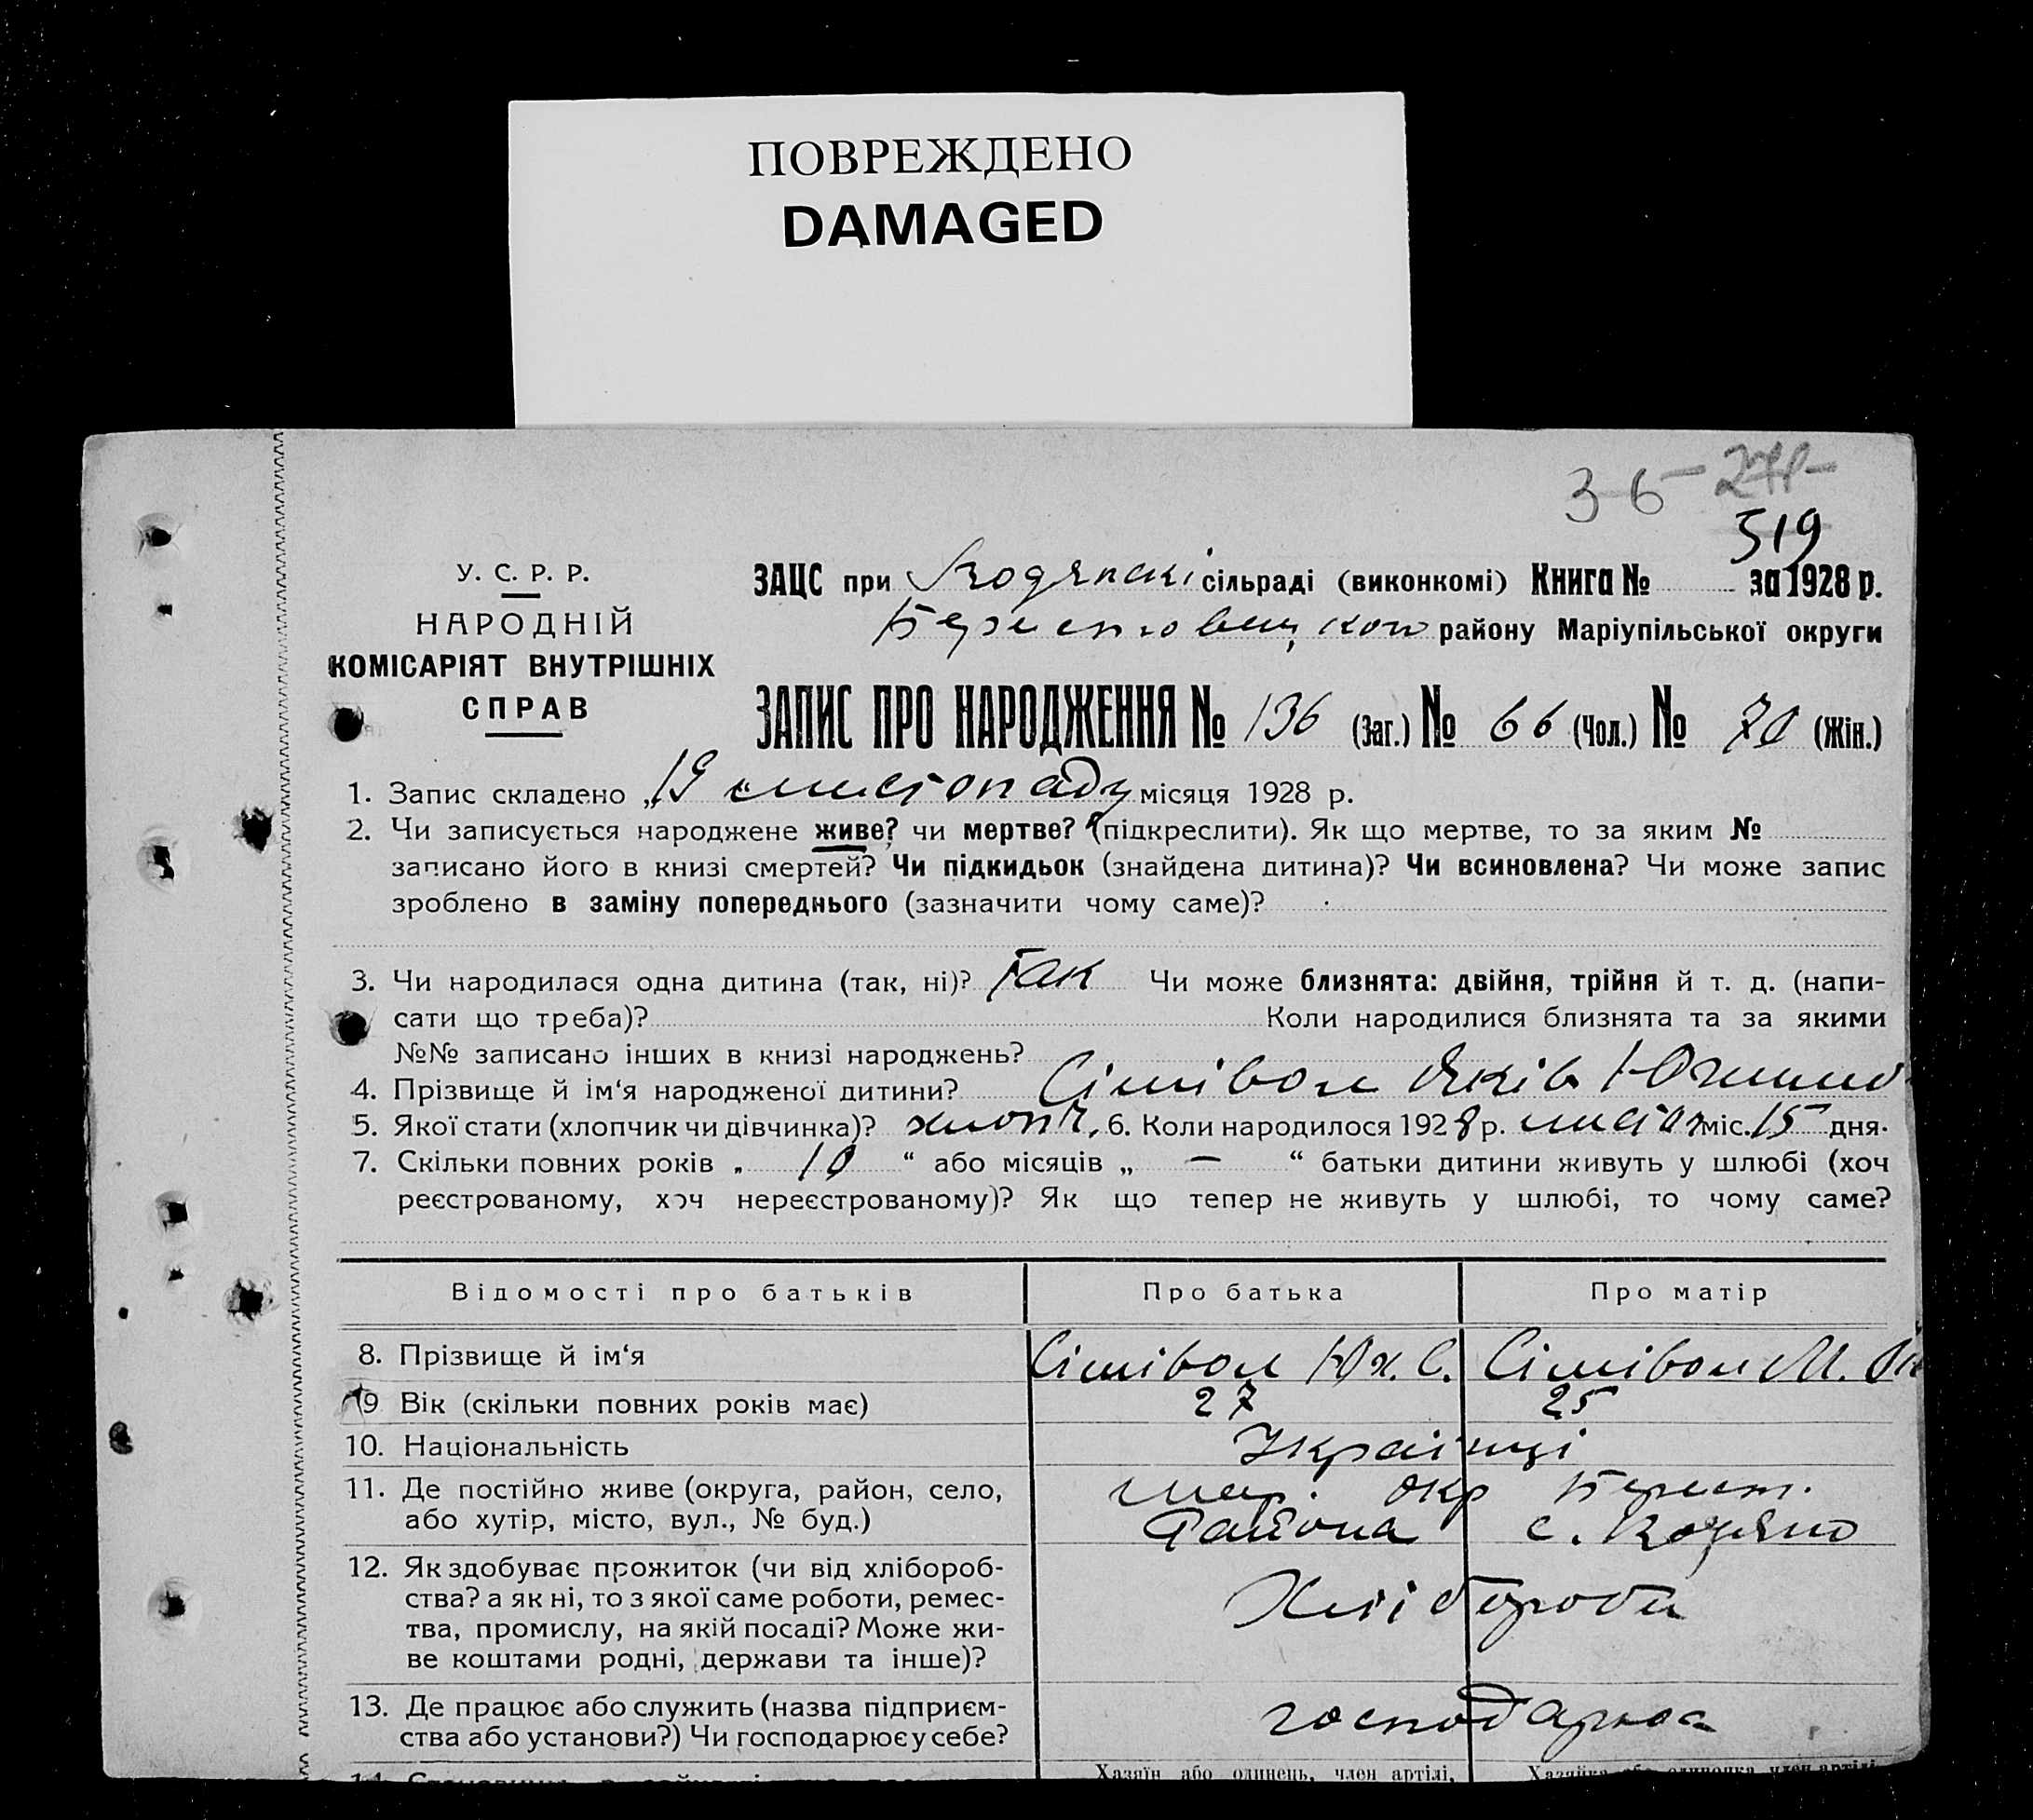 ПОВРЕЖДЕНО
DAMAGED
36 –
519
У. С. Р. Р.
НАРОДНІЙ
КОМІСАРІЯТ ВНУТРІШНІХ
СПРАВ
ЗАЦС при Кодянскі сільраді (виконкомі) Книга № за 1928 р.
району Маріупільської округи
ЗАПИС ПРО НАРОДЖЕННЯ № 136 (Заг.) № 66 (Чол.) № 70 (Жін.)
1. Запис складено „19 листопаду місяця 1928 р.
2. Чи записується народжене живе? чи мертве? (підкреслити). Як що мертве, то за яким №
записано його в книзі смертей? Чи підкидьок (знайдена дитина)? Чи всиновлена? Чи може запис
зроблено в заміну попереднього (зазначити чому саме)?
3. Чи народилася одна дитина (так, ні)? Так Чи може близнята: двійня, трійня й т. д. (напи-
сати що треба)? Коли народилися близнята та за якими
№№ записано інших в книзі народжень?
4. Прізвище й ім‘я народженої дитини? Сімівол Яків
5. Якої стати (хлопчик чи дівчинка)? хлопч. 6. Коли народилося 1928 р. листоп міс. 15 дня.
7. Скільки повних років „ 10 “ або місяців „ — “ батьки дитини живуть у шлюбі (хоч
реєстрованому, хоч нереєстрованому)? Як що тепер не живуть у шлюбі, то чому саме?
Відомості про батьків Про батька Про матір
8. Прізвище й ім‘я Сімівол Юх. С. Сімівол М.
9 Вік (скільки повних років має) 27 25
10. Національність Українці
11. Де постійно живе (округа, район, село, мар. окр Берест.
або хутір, місто, вул., № буд.) Района с.
12. Як здобуває прожиток (чи від хлібороб- Хлібороби
ства? а як ні, то з якої саме роботи, ремес-
тва, промислу, на якій посаді? Може жи-
ве коштами родні, держави та інше)?
13. Де працює або служить (назва підприєм-
ства або установи?) Чи господарює у себе?
Хазяїн або одинець, член артілі,